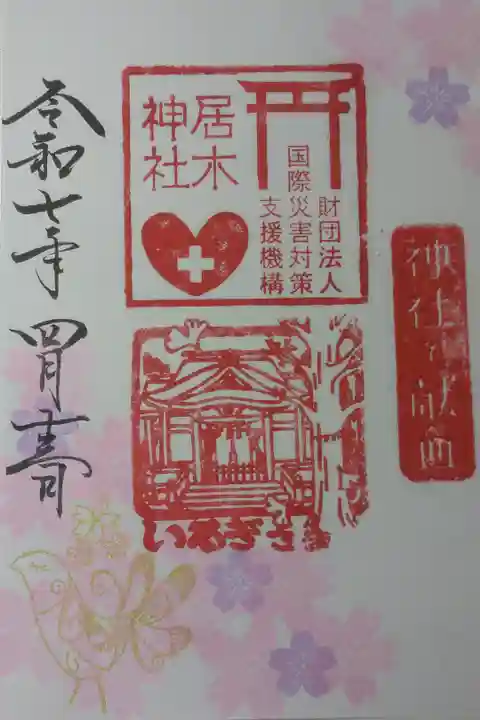 神社で献血
居木
神社
財団法人
国際災害対策
支援機構
いるぎさま
令和七年 四月